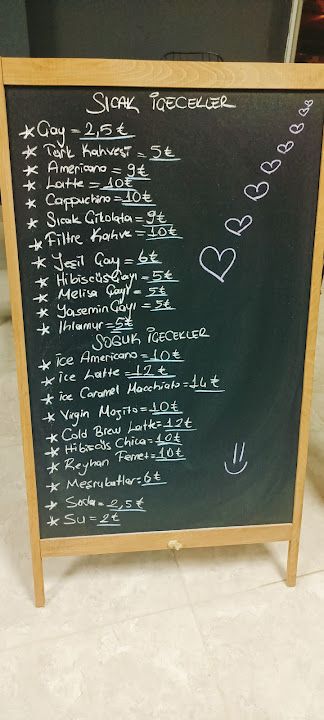 SICAK İÇECEKLER
* Çay = 2,5 ₺
* Türk Kahvesi = 5 ₺
* Americano = 9 ₺
* Latte = 10 ₺
* Cappuchino = 10 ₺
* Sıcak Çikolata = 9 ₺
* Filtre Kahve = 10 ₺
* Yeşil Çay = 6 ₺
* Hibiscüs Çayı = 5 ₺
* Melisa Çayı = 5 ₺
* Yasemin Çayı = 5 ₺
* Ihlamur = 5 ₺
SOĞUK İÇECEKLER
* İce Americano = 10 ₺
* İce Latte = 12 ₺
* ice Caramel Macchiato = 14 ₺
* Virgin Mojito = 10 ₺
* Cold Brew Latte = 12 ₺
* Hibiscüs Chica = 10 ₺
* Reyhan Ferret = 10 ₺
* Meşrubatlar = 6 ₺
* Soda = 2,5 ₺
* Su = 2 ₺